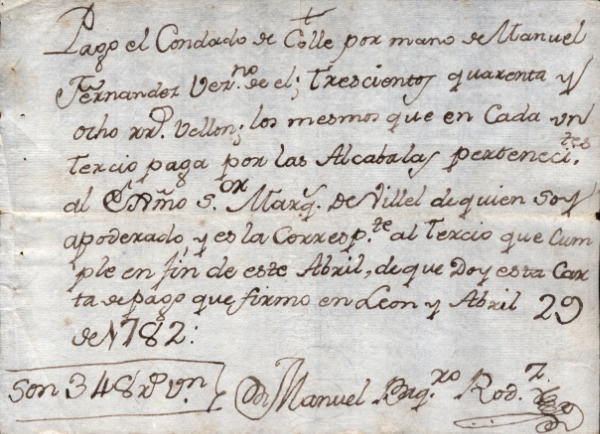 Pago el Condado de Colle por mano de Manuel
Fernandez Vez.no de el; Trescientos quarenta y
ocho rr.s Vellon; los mesmos que en Cada vn
Tercio paga por las Alcabalas perteneci.tes
al Exmo s.or Marq.s de Villel de quien soy
apoderado, y es la Corresp.te al Tercio que Cum
ple en fin de este Abril, de que Doy esta Car
ta de pago que firmo en Leon y Abril 29
de 1782:
Son 348 r.s v.n
Dn Manuel Rod.z